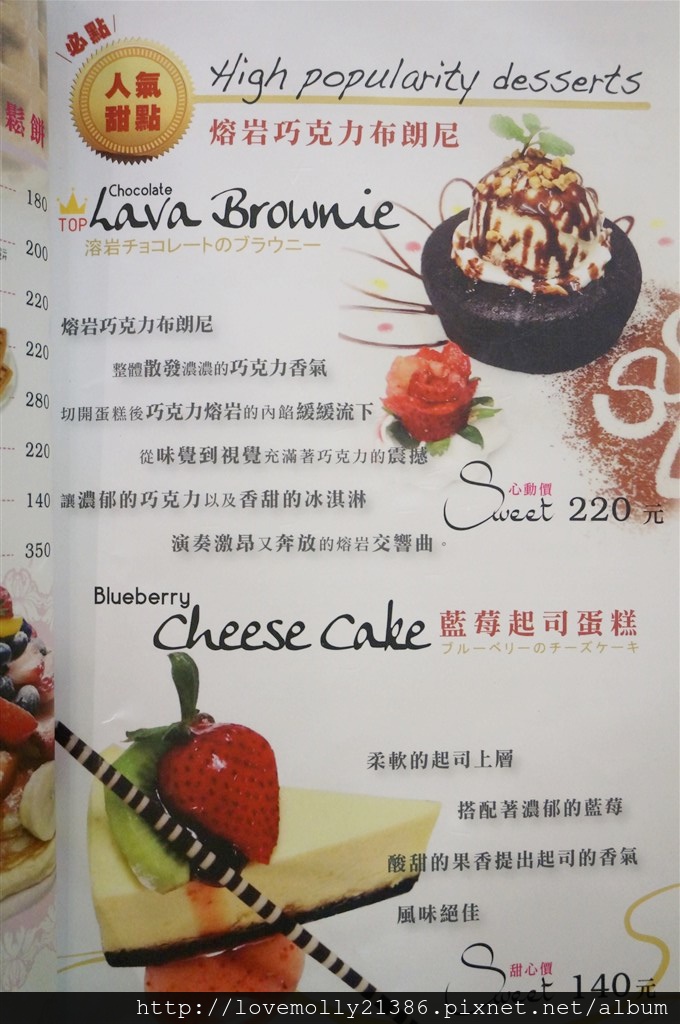 必點
人氣
甜點
High popularity desserts
熔岩巧克力布朗尼
鬆餅
180
200
220
220
280
220
140
350
TOP
Chocolate
Lava Brownie
溶岩チョコレートのブラウニー
熔岩巧克力布朗尼
整體散發濃濃的巧克力香氣
切開蛋糕後巧克力熔岩的內餡緩緩流下
從味覺到視覺充滿著巧克力的震撼
讓濃郁的巧克力以及香甜的冰淇淋
演奏激昂又奔放的熔岩交響曲。
心動價
Sweet 220 元
Blueberry
Cheese Cake 藍莓起司蛋糕
ブルーベリーのチーズケーキ
柔軟的起司上層
搭配著濃郁的藍莓
酸甜的果香提出起司的香氣
風味絕佳
甜心價
Sweet 140 元
http://lovemolly21386.pixnet.net/album